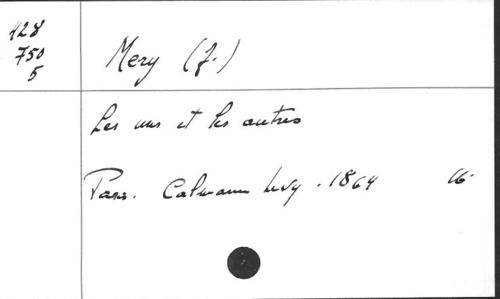 128
750
5
Mery (J.)
Les uns et les autres
Paris. Calmann Levy. 1864 16.